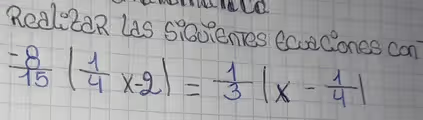 RealizaR las siguientes ecuaciones con
-8/15 (1/4 x-2) = 1/3 (x - 1/4)